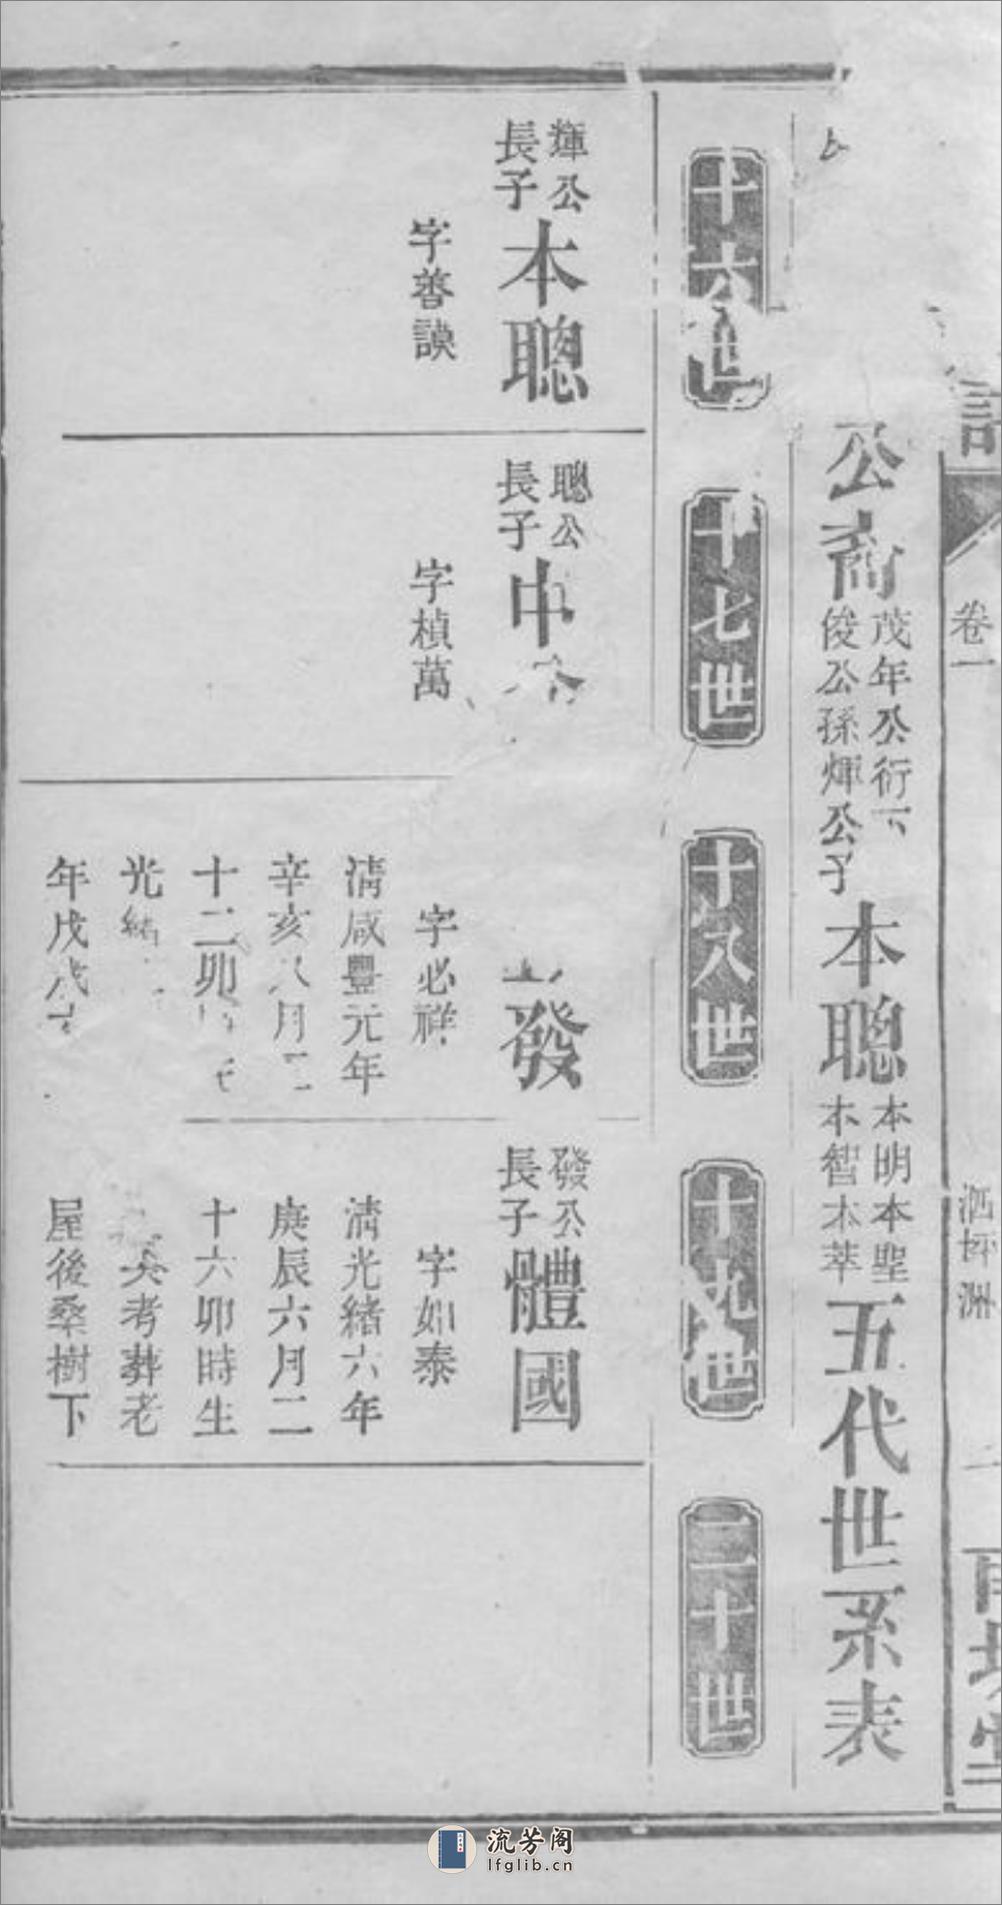 卷一
公裔
茂年公衍下
俊公孫煇公子
本聰
本明本聖
本智本萃
五代世系表
十六世
十七世
十八世
十九世
二十世
輝公
長子
本聰
字普謨
聰公
長子
中
字楨萬
發
字必祥
清咸豐元年
辛亥八月二
十二卯
光緒
年戊戌
發公
長子
體國
字如泰
清光緒六年
庚辰六月二
十六卯時生
考葬老
屋後桑樹下
流芳阁
lfglib.cn